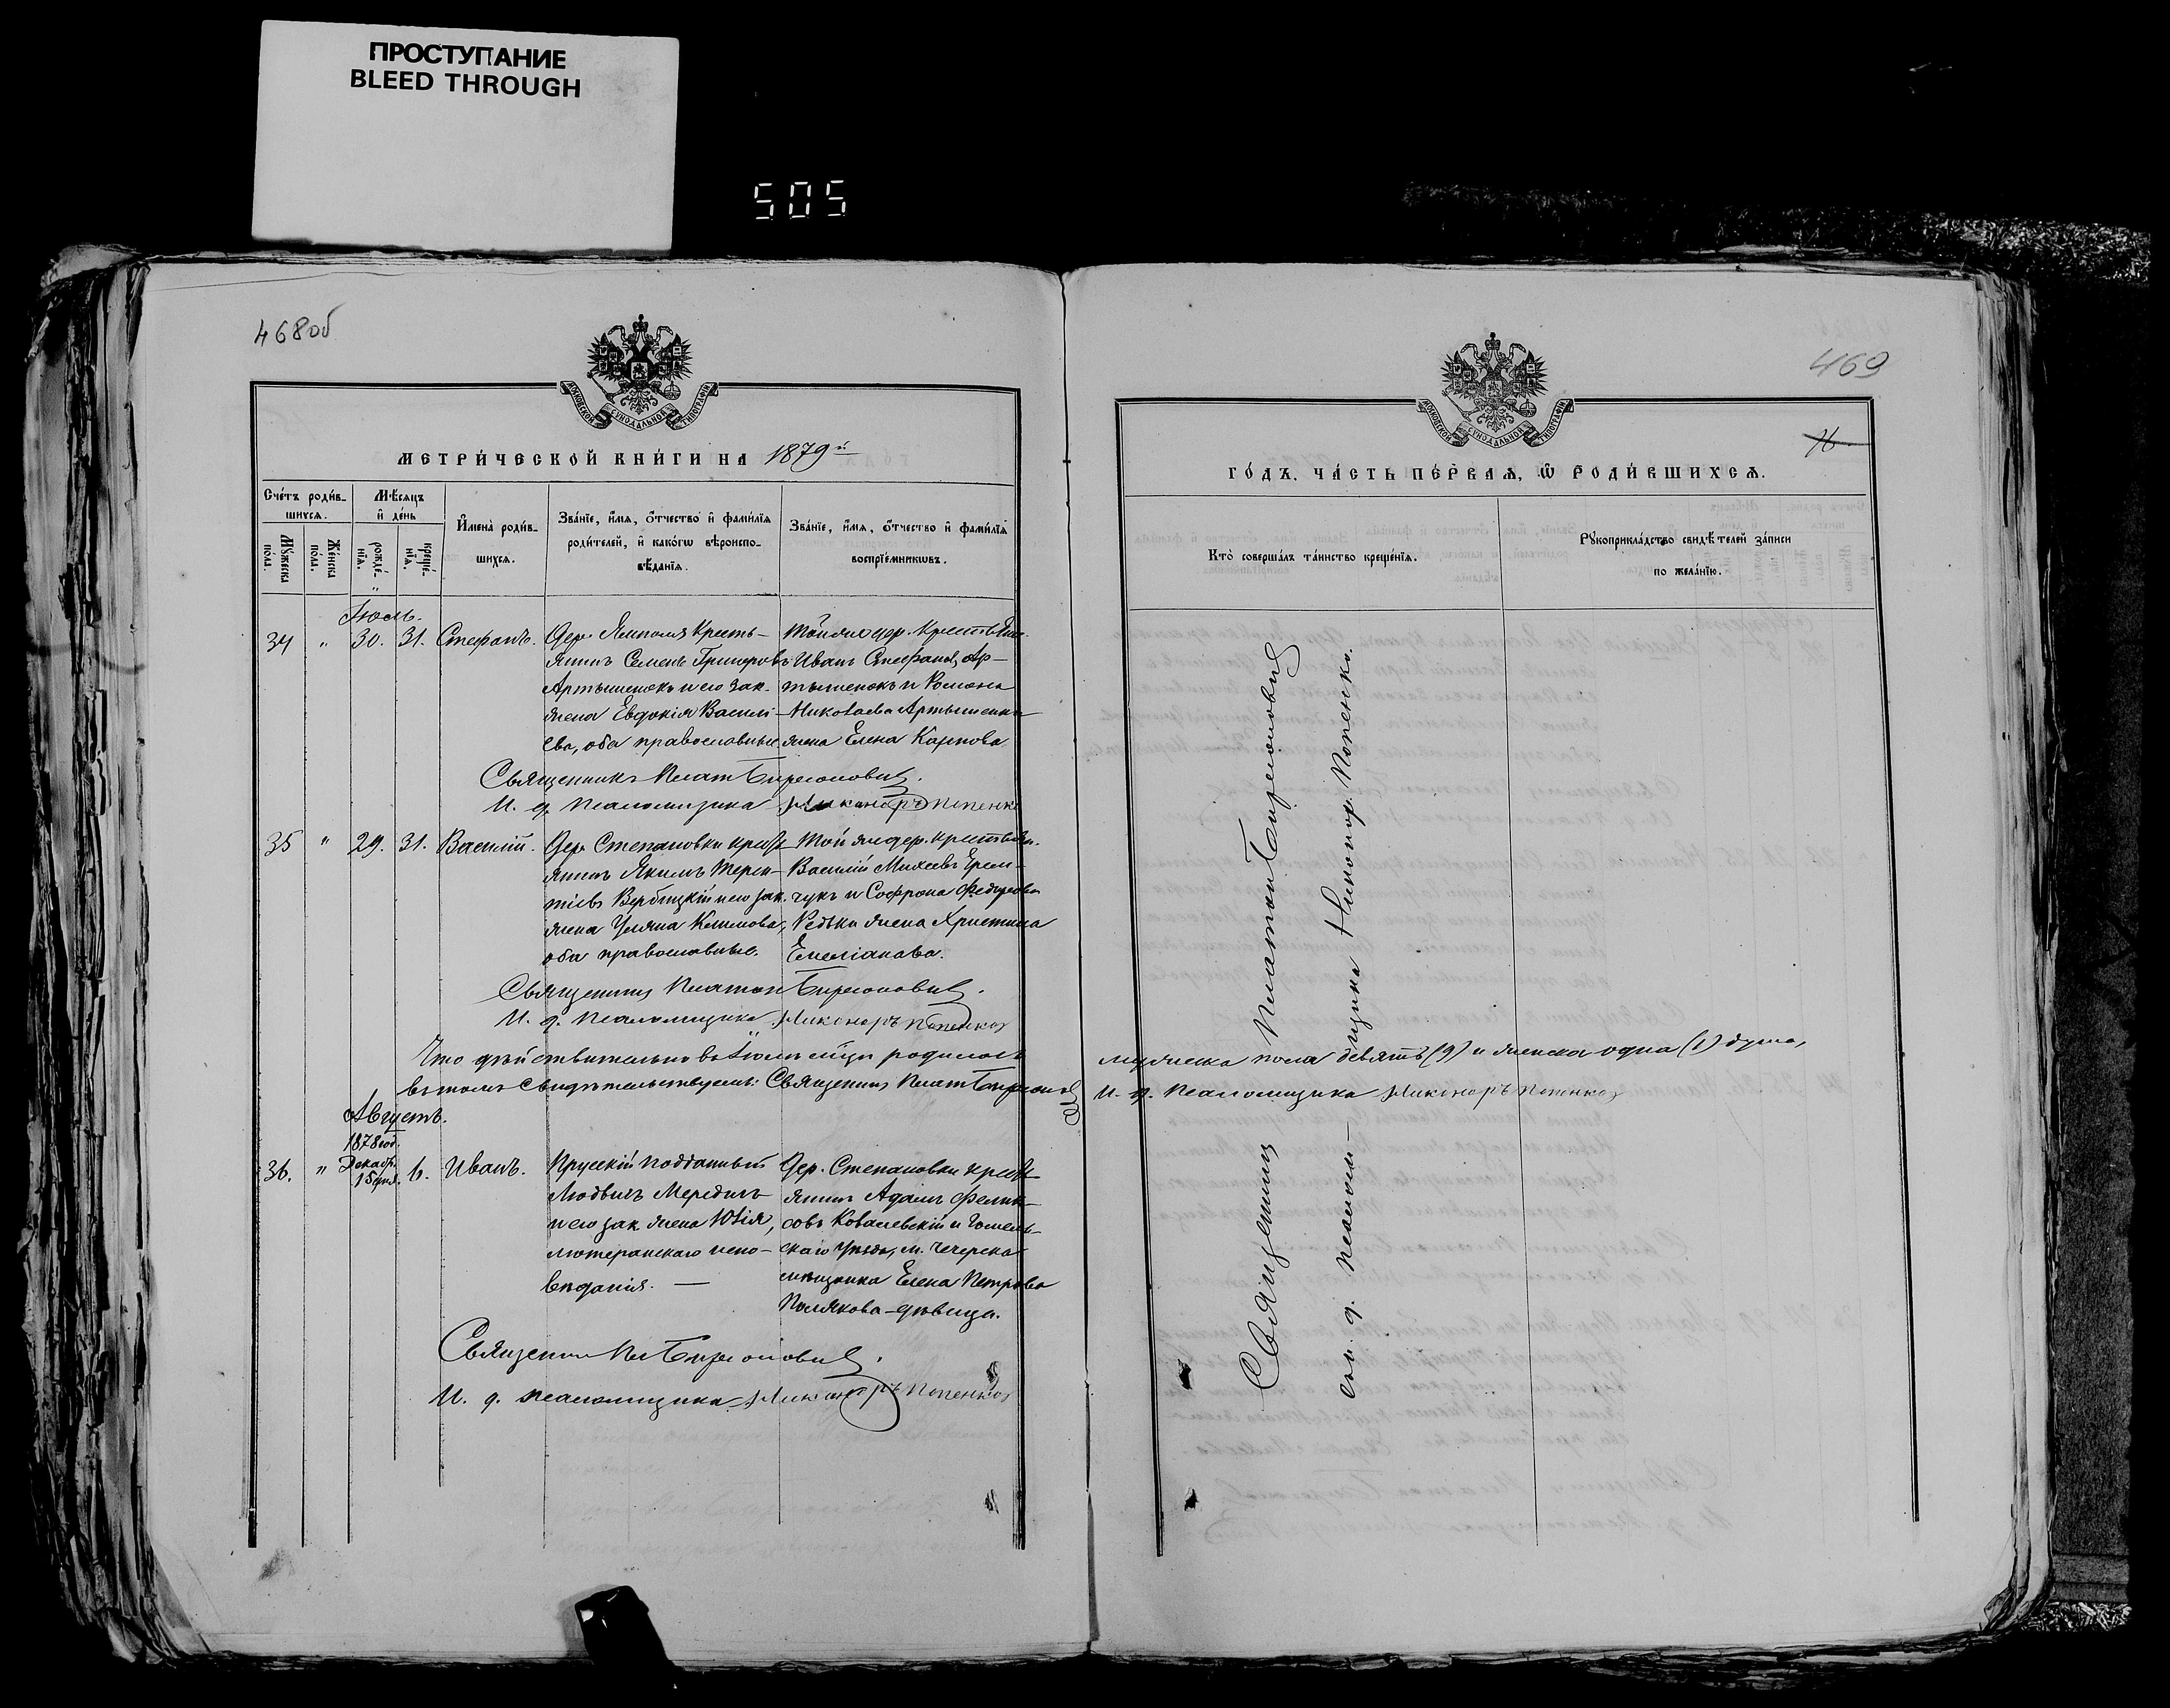 ПРОСТУПАНИЕ
BLEED THROUGH
505
468об
МОСКОВСКОЙ СУНОДАЛЬНОЙ ТИПОГРАФІИ
МЕТРИ́ЧЕСКОЙ КНИ́ГИ НА 1879й
Сче́тъ роди́в-
шихся.
Мѣ́сяцъ
и҆ де́нь
Му́жеска
пола.
Же́нска
пола.
рожде́-
нїя.
креще́-
нїя.
И҆мена̀ роди́в-
шихся.
Зва́нїе, и҆́мя, ѻ҆́тчество и҆ фами́лїя
роди́телей, и҆ како́гѡ вѣроиспо-
вѣ́данїя.
Зва́нїе, и҆́мя, ѻ҆́тчество и҆ фами́лїя
воспрїе́мникѡвъ.
Іюль.
34 " 30. 31. Стефанъ.
Дер. Ямполя Кресть-
янинъ Семенъ Григоровъ
Артюшенокъ и его зак.
жена Евдокія Василі-
ева, оба православные
Той же дер. Крестьян.
Иванъ Стефановъ Ар-
тюшенокъ и Романа
Николаева Артюшенка
жена Елена Карпова.
Священникъ Плат Бирюкович.
И. д. псаломщика Никаноръ Попенко
35 " 29. 31. Василій.
Дер. Степановки крест
янинъ Якимъ Терен-
тіевъ Вербицкій и его зак.
жена Уляна Климова,
оба православные.
Той же дер. крестьян.
Василій Михеевъ Ерем-
чукъ и Софрона Федорова
Редьки жена Христина
Емеліанова.
Священникъ Платон
И. д. псаломщика Никаноръ Попенко
Что дѣйствительно въ Іюлѣ м̃цѣ родилось мужеска пола девять (9) и женска одна (1) душа,
въ томъ свидѣтельствуемъ: Священникъ Плат И. д. псаломщика Никаноръ Попенко
Августъ.
1878 год.
Декабр.
15 дня.
36. " 6. Иванъ.
Прусскій подданный
Людвигъ
и его зак. жена Юлія,
лютеранскаго испо-
вѣданія. —
Дер. Степановки крест
янинъ Адамъ Феликс-
овъ Ковалевскій и Гомель-
скаго уѣзда, м. Чечерска
мѣщанка Елена Петрова
Полякова - дѣвица.
Священник Пл
И. д. псаломщика Никаноръ Попенко
469
76
МОСКОВСКОЙ СУНОДАЛЬНОЙ ТИПОГРАФІИ
ГО́ДЪ, ЧА́СТЬ ПЕ́РВАЯ, Ѡ҆ РОДИ́ВШИХСЯ.
Кто̀ соверша́лъ та́инство креще́нїя.
Рꙋкоприкла́дство свидѣ́телей за́писи
по жела́нїю.
Священникъ Платон
и. д. псаломщика Никанор. Попенко.